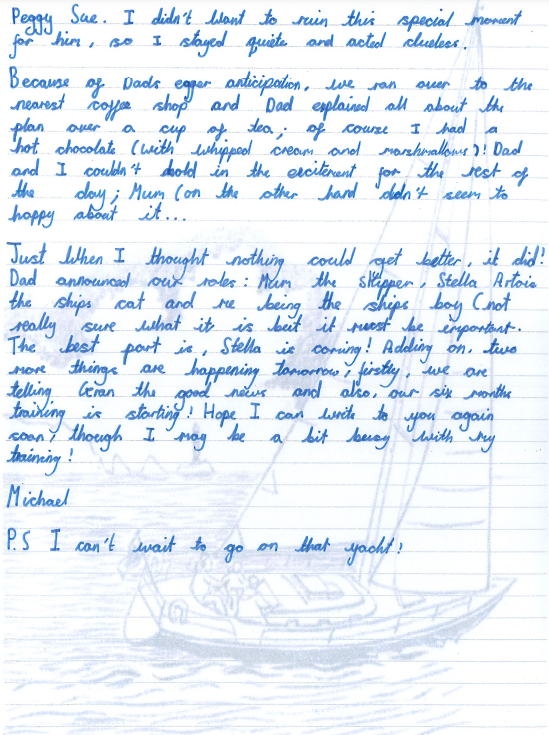 Peggy Sue. I didn't want to ruin this special moment
for him, so I stayed quiete and acted clueless.
Because of Dads eager anticipation, we ran over to the
nearest coffee shop and Dad explained all about the
plan over a cup of tea; of course I had a
hot chocolate (with whipped cream and marshmallows)! Dad
and I couldn't hold in the exciterment for the rest of
the day; Mum (on the other hand didn't seem to
happy about it...
Just when I thought nothing could get better, it did!
Dad announced our roles: Mum the Skipper, Stella Artois
the ships cat and me being the ships boy (not
really sure what it is but it must be important.
The best part is, Stella is coming! Adding on, two
more things are happening tomorrow; firstly, we are
telling Gran the good news and also, our six months
training is starting! Hope I can write to you again
soon; though I may be a bit busy with my
training!
Michael
P.S I can't wait to go on that yacht!